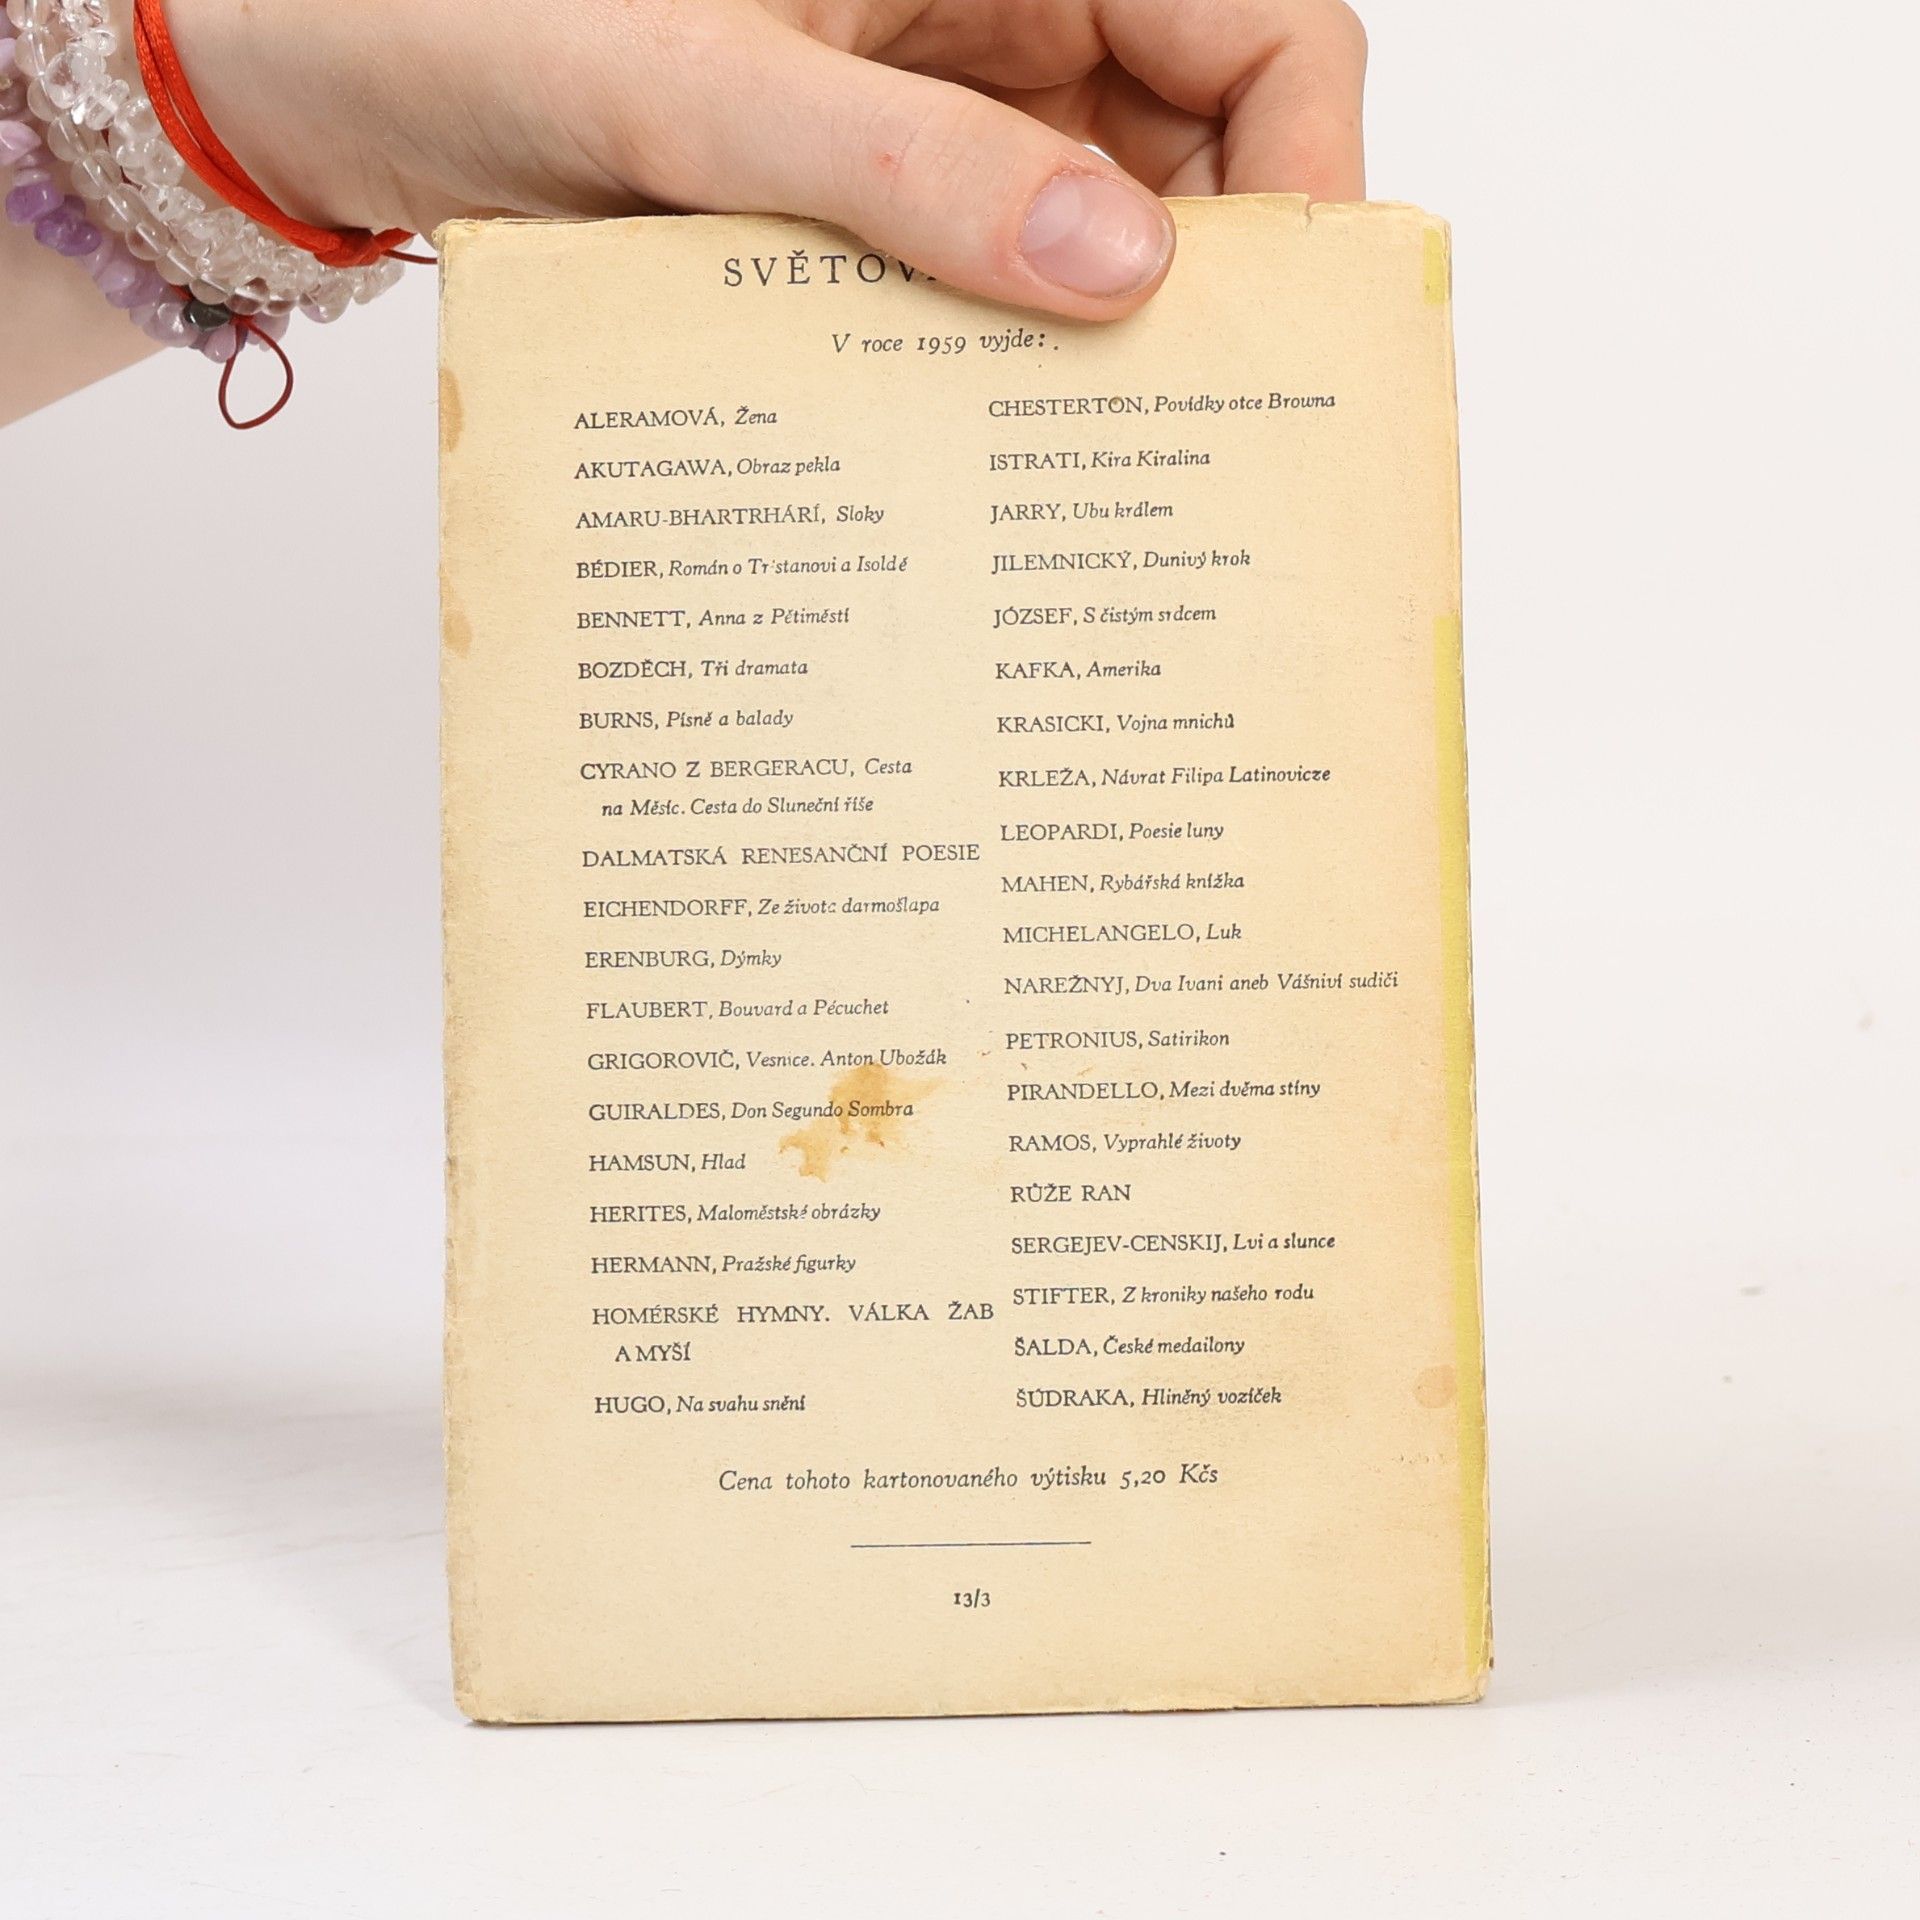 V roce 1959 vyjde:
ALERAMOVÁ, Žena
AKUTAGAWA, Obraz pekla
AMARU-BHARTRHÁRÍ, Sloky
BÉDIER, Román o Tristanovi a Isoldě
BENNETT, Anna z Pětiměstí
BOZDĚCH, Tři dramata
BURNS, Písně a balady
CYRANO Z BERGERACU, Cesta
na Měsíc. Cesta do Sluneční říše
DALMATSKÁ RENESANČNÍ POESIE
EICHENDORFF, Ze života darmošlapa
ERENBURG, Dýmky
FLAUBERT, Bouvard a Pécuchet
GRIGOROVIČ, Vesnice. Anton Ubožák
GUIRALDES, Don Segundo Sombra
HAMSUN, Hlad
HERITES, Maloměstské obrázky
HERMANN, Pražské figurky
HOMÉRSKÉ HYMNY. VÁLKA ŽAB
A MYŠÍ
HUGO, Na svahu snění
CHESTERTON, Povídky otce Browna
ISTRATI, Kira Kiralina
JARRY, Ubu králem
JILEMNICKÝ, Dunivý krok
JÓZSEF, S čistým srdcem
KAFKA, Amerika
KRASICKI, Vojna mnichů
KRLEŽA, Návrat Filipa Latinovicze
LEOPARDI, Poesie luny
MAHEN, Rybářská knížka
MICHELANGELO, Luk
NAREŽNYJ, Dva Ivani aneb Vášniví sudiči
PETRONIUS, Satirikon
PIRANDELLO, Mezi dvěma stíny
RAMOS, Vyprahlé životy
RŮŽE RAN
SERGEJEV-CENSKIJ, Lvi a slunce
STIFTER, Z kroniky našeho rodu
ŠALDA, České medailony
ŠÚDRAKA, Hliněný vozíček
Cena tohoto kartonovaného výtisku 5,20 Kčs
13/3